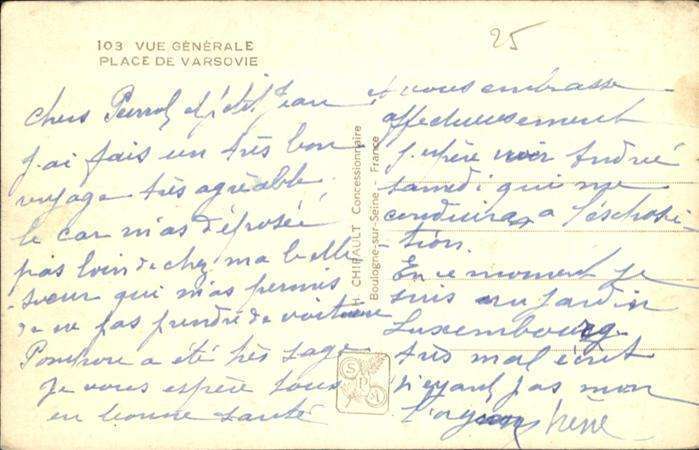 25
103 VUE GÉNÉRALE
PLACE DE VARSOVIE
chers Pierrot et p'tit Jean
j'ai fais un très bon
voyage très agréable
le car m'as déposée
pas loin de chez ma belle
-sœur qui m'as permis
de ne pas prendre de voiture
a été très sage
Je vous espère tous
en bonne santé
H. CHIPAULT Concessionnaire
Boulogne-sur-Seine - France
SPK
& vous embrasse
affectueusement
j'espère voir André
samedi qui me
conduira a l'exhosi-
-tion.
En ce moment je
suis au jardin
Luxembourg
très mal écrit
n'ayant pas mon